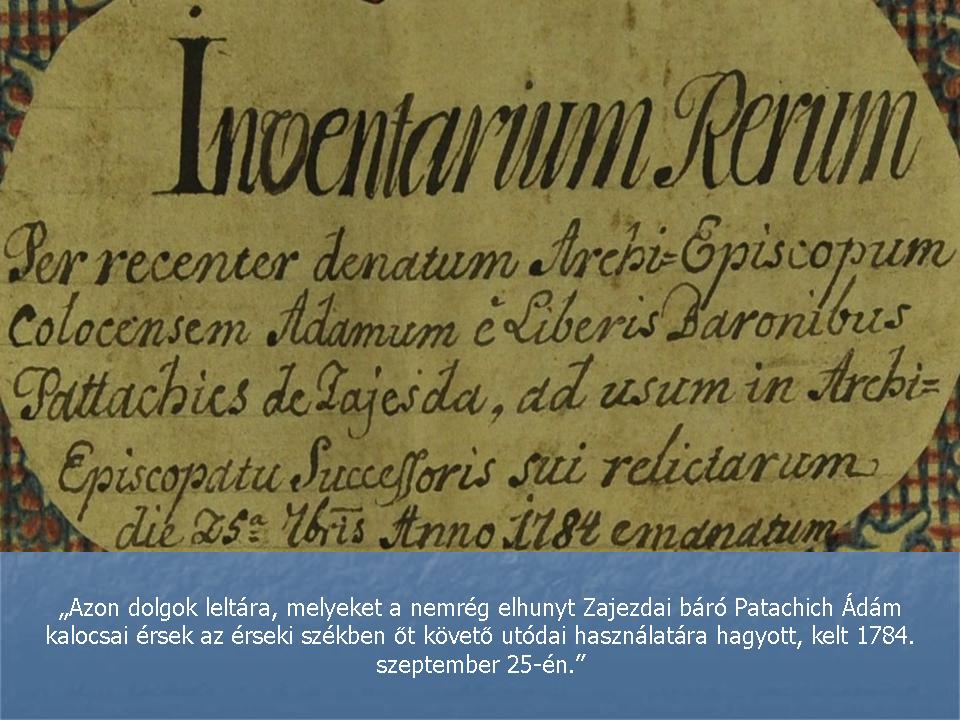 Inventarium Rerum
Per recenter denatum Archi=Episcopum
Colocensem Adamum è Liberis Baronibus
Pattachics de Zajesda, ad usum in Archi=
Episcopatu Successoris sui relictarum
die 25ª 7bris Anno 1784 emanatum
„Azon dolgok leltára, melyeket a nemrég elhunyt Zajezdai báró Patachich Ádám
kalocsai érsek az érseki székben őt követő utódai használatára hagyott, kelt 1784.
szeptember 25-én.”